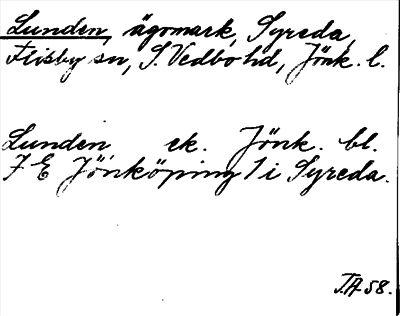 Lunden, ägomark, Syreda,
Flisby sn, S. Vedbo hd, Jönk. l.
Lunden ek. Jönk. bl.
7 E Jönköping 1 i Syreda.
J.A. 58.